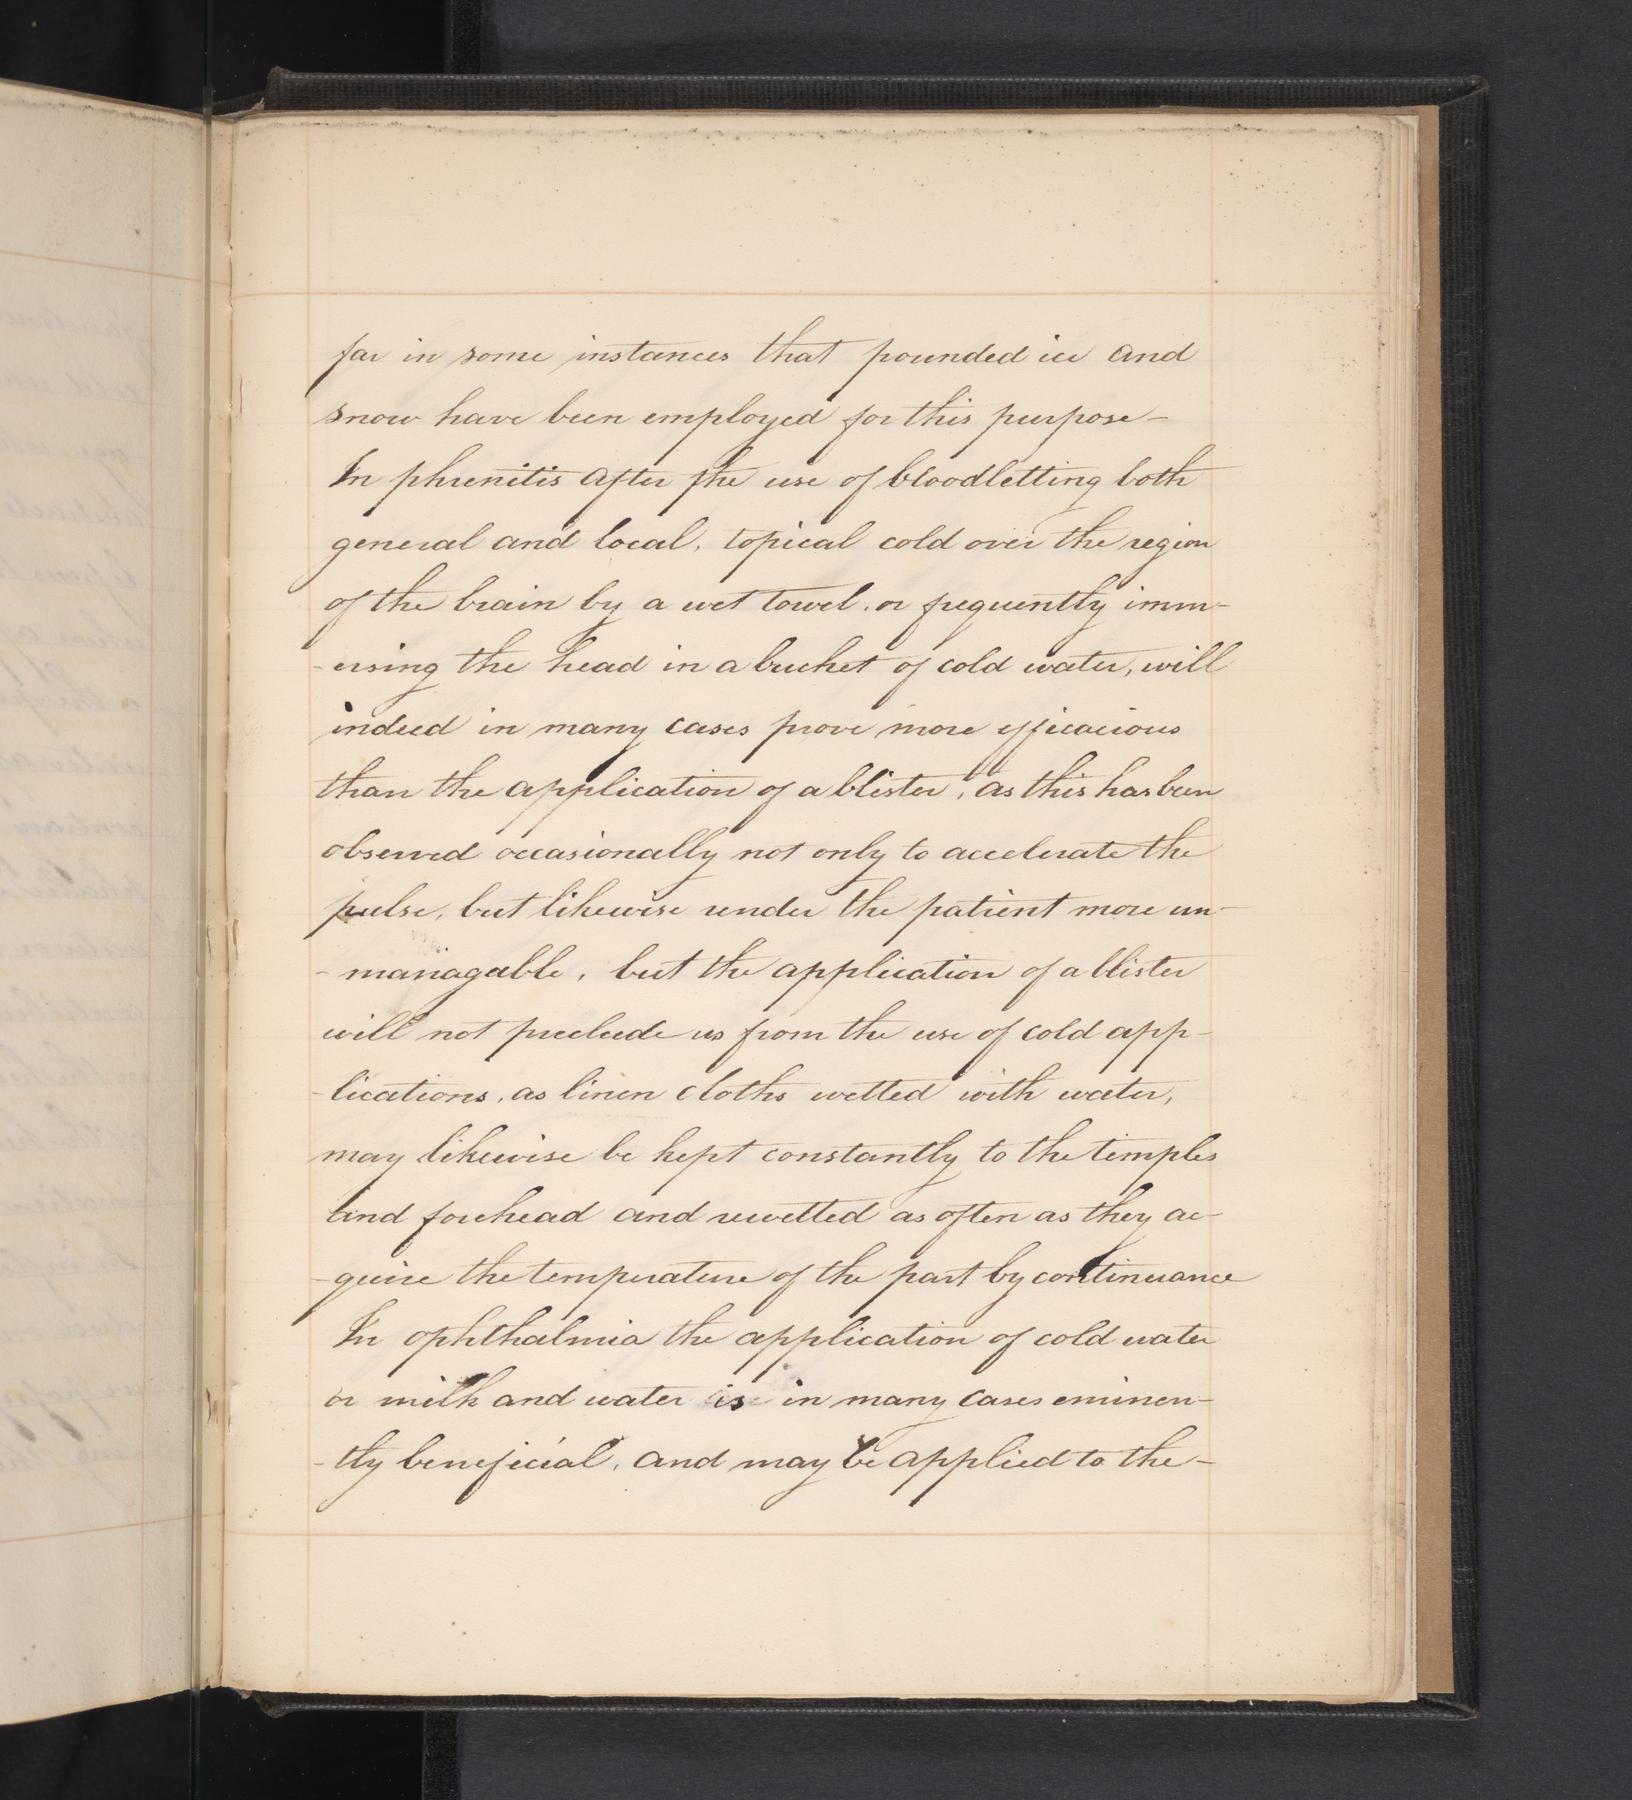 far in some instances that pounded ice and
snow have been employed for this purpose—
In phrenitis after the use of bloodletting both
general and local, topical cold over the region
of the brain by a wet towel, or frequently imm-
-ersing the head in a bucket of cold water, will
indeed in many cases prove more efficacious
than the application of a blister, as this has been
observed occasionally not only to accelerate the
pulse, but likewise render the patient more un-
-managable, but the application of a blister
will not preclude us from the use of cold app-
-lications, as linen cloths wetted with water,
may likewise be kept constantly to the temples
and forehead and rewetted as often as they ac-
-quire the temperature of the part by continuance
In ophthalmia the application of cold water
or milk and water is in many cases eminen-
-tly beneficial, and may be applied to the—